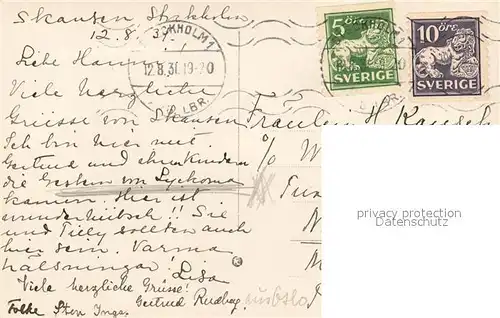 Skansen Stockholm
12.8.31.
Liebe Hanni!
Viele herzliche
Grüsse von Skansen
Ich bin hier mit
Gertrud und
die gestern von
kamen. Hier ist
wunderhübsch!! Sie
und Tilly sollten auch
hier sein. Varma
hälsningar! Lisa
Viele herzliche Grüsse!
Gertrud
Folke Sten Inga
STOCKHOLM 1
12.8.31.19-20
LBR.
5 ÖRE
SVERIGE
10 ÖRE
SVERIGE
Fräulein H.
% W
privacy protection
Datenschutz